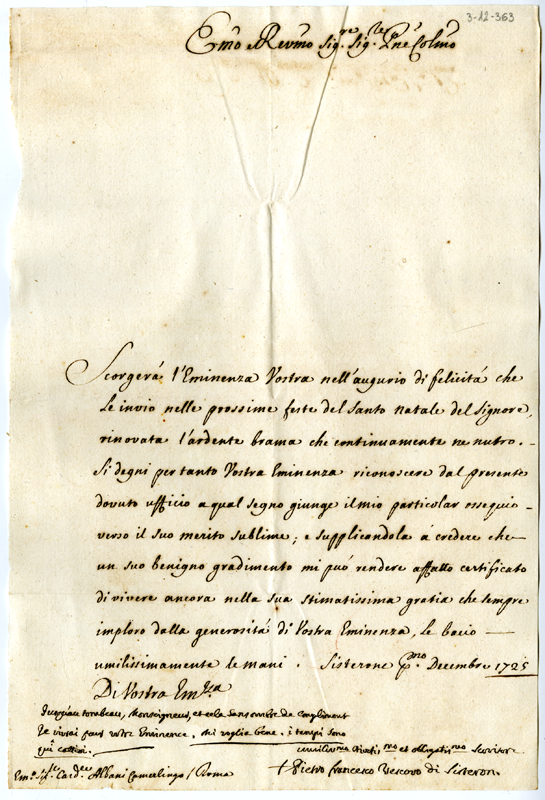 3-12-363
Emo e Revmo Sigre Sigre Pne Colmo
Scorgerá l'Eminenza Vostra nell'augurio di felicitá che
Le invio nelle prossime feste del Santo natale del Signore,
rinovata l'ardente brama che continuamente ne nutro.
Si degni per tanto Vostra Eminenza riconoscere dal presente
dovuto ufficio a qual segno giunge il mio particolar ossequio
verso il suo merito sublime; e supplicandola á credere che
un suo benigno gradimento mi puó rendere affatto certificato
di vivere ancora nella sua stimatissima gratia che sempre
imploro dalla generositá di Vostra Eminenza, le bacio
umilissimamente le mani. Sisterone pmo Decembre 1725
Di Vostra Emza
Jusqu'au tombeau, Monseigneur, et cela sans ombre de compliment
Je vivrai pour votre Eminence. mi voglia bene. i tempi sono
qui cattivi.
umilissmo et obligatismo Servitore
Emo Sigre Cardle Albani Camerlingo / Roma
+ Pietro francesco Vescovo di Sisteron.